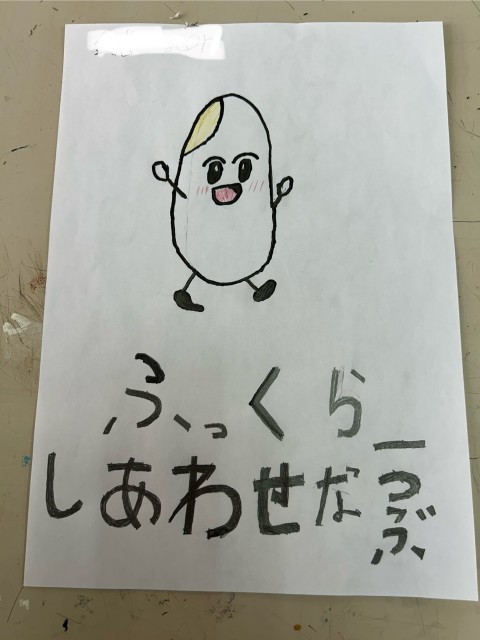 ふっくら
しあわせな一つぶ